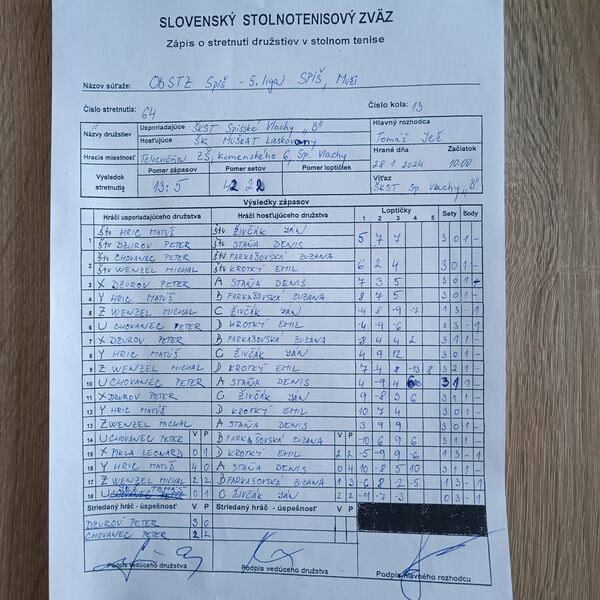 SLOVENSKÝ STOLNOTENISOVÝ ZVÄZ
Zápis o stretnutí družstiev v stolnom tenise
Názov súťaže: ObSTZ Spiš - 5. liga SPIŠ, Muži
Číslo stretnutia: 64 Číslo kola: 13
Názvy družstiev Usporiadajúce ŠKST Spišské Vlachy "B" Hlavný rozhodca
Hosťujúce ŠK MUŠKÁT Lieskovany Tomáš Jež
Hracia miestnosť Telocvičňa ZŠ, Komenského 6, Sp. Vlachy Hrané dňa Začiatok
28.1.2024 10.00
Výsledok stretnutia Pomer zápasov Pomer setov Pomer loptičiek Víťaz
13:5 ŠKST Sp Vlachy "B"
Výsledky zápasov
Hráči usporiadajúceho družstva Hráči hosťujúceho družstva Loptičky Sety Body
1 2 3 4 5
1 štv HRIC MATÚŠ štv. ŽIVČÁK JÁN 5 7 7 3 0 1 -
štv DZUROV PETER štv STAŇA DENIS
2 štv CHOVANEC PETER štv FARKAŠOVSKÁ ZUZANA 6 2 4 3 0 1 -
štv WENZEL MICHAL štv KROTKÝ EMIL
3 X DZUROV PETER A STAŇA DENIS 7 3 5 3 0 1 -
4 Y HRIC MATÚŠ B FARKAŠOVSKÁ ZUZANA 8 7 5 3 0 1 -
5 Z WENZEL MICHAL C ŽIVČÁK JÁN -4 8 -9 -7 1 3 - 1
6 U CHOVANEC PETER D KROTKÝ EMIL -4 -9 -6 0 3 - 1
7 X DZUROV PETER B FARKAŠOVSKÁ ZUZANA -8 4 4 2 3 1 1 -
8 Y HRIC MATÚŠ C ŽIVČÁK JÁN 4 9 12 3 0 1 -
9 Z WENZEL MICHAL D KROTKÝ EMIL 7 -4 8 -13 8 3 2 1 -
10 U CHOVANEC PETER A STAŇA DENIS 4 -9 4 3 1 1 -
11 X DZUROV PETER C ŽIVČÁK JÁN 9 -8 3 6 3 1 1 -
12 Y HRIC MATÚŠ D KROTKÝ EMIL 10 7 4 3 0 1 -
13 Z WENZEL MICHAL A STAŇA DENIS 3 9 9 3 0 1 -
14 U CHOVANEC PETER V P B FARKAŠOVSKÁ ZUZANA V P -10 6 9 6 3 1 1 -
15 X PIKLA LEONARD 0 1 D KROTKÝ EMIL 2 2 -5 -9 9 -6 1 3 - 1
16 Y HRIC MATÚŠ 4 0 A STAŇA DENIS 0 4 10 -8 5 10 3 1 1 -
17 Z WENZEL MICHAL 2 2 B FARKAŠOVSKÁ ZUZANA 1 3 -6 8 -2 -5 1 3 - 1
18 U JEŽ TOMÁŠ 0 1 C ŽIVČÁK JÁN 2 2 -11 -7 -3 0 3 - 1
Striedaný hráč - úspešnosť V P Striedaný hráč - úspešnosť V P
DZUROV PETER 3 0
CHOVANEC PETER 2 2
Podpis vedúceho družstva Podpis vedúceho družstva Podpis hlavného rozhodcu